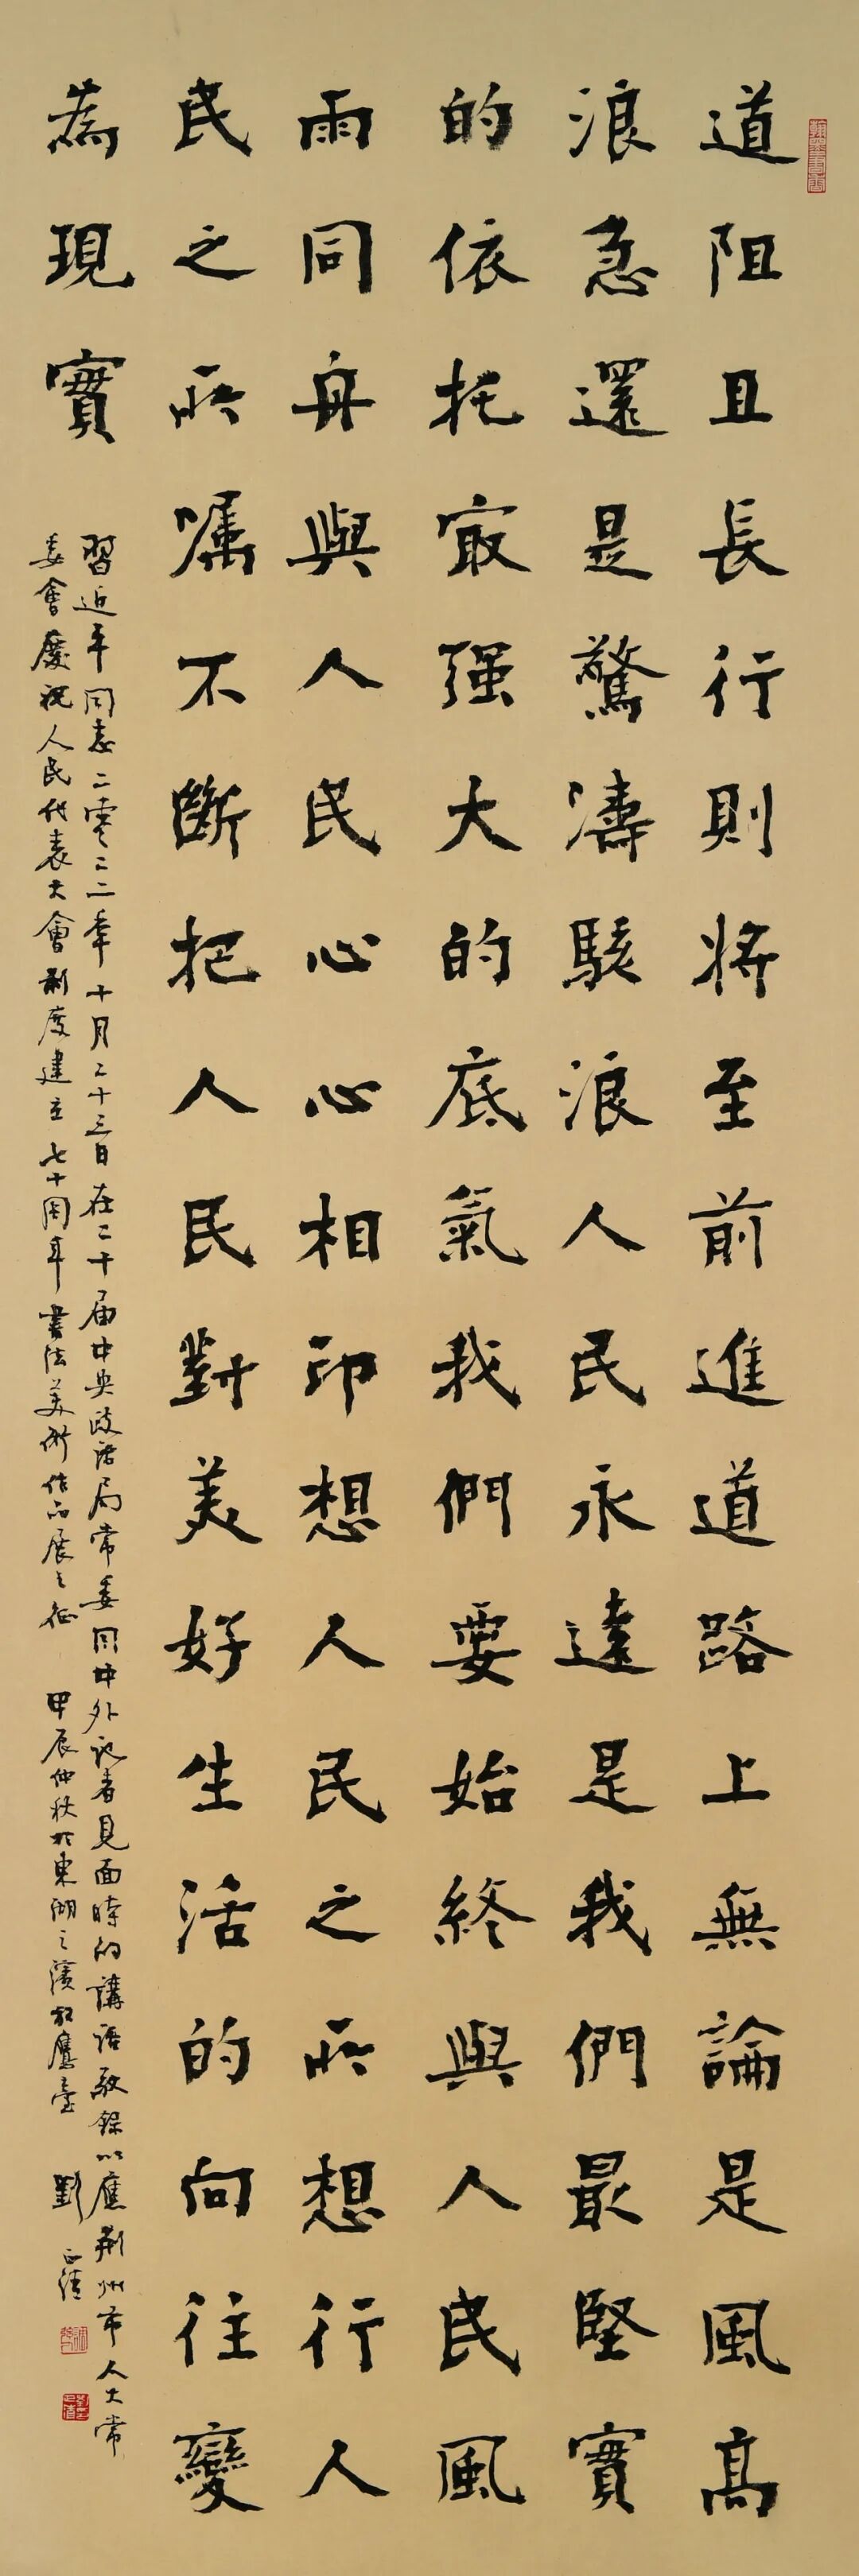 道阻且長行則將至前進道路上無論是風高
浪急還是驚濤駭浪人民永遠是我們最堅實
的依托冣强大的底氣我們要始終與人民風
雨同舟與人民心心相印想人民之所想行人
民之所嘱不斷把人民對美好生活的向往變
為現實
習近平同志二零二二年十月二十三日在二十届中央政治局常委同中外記者見面時的講話敬錄以應荆州市人大常
委會慶祝人民代表大會制度建立七十周年書法美術作品展之征 甲辰仲秋於東湖之濱放鷹臺 劉